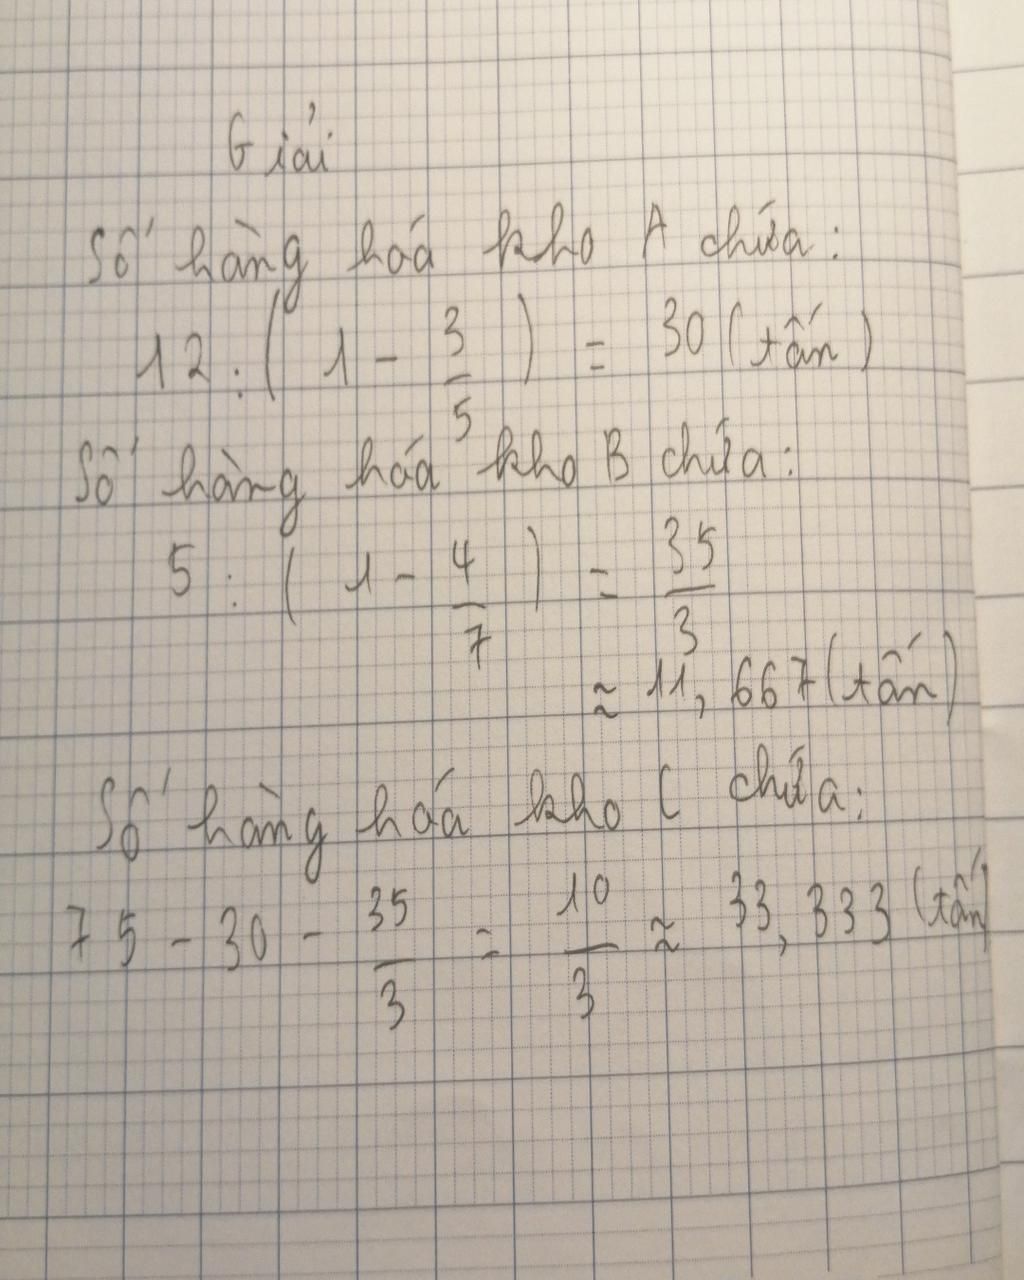 Giải
Số hàng hoá kho A chứa:
12 : ( 1 - 3/5 ) = 30 (tấn)
Số hàng hoá kho B chứa:
5 : ( 1 - 4/7 ) = 35/3
≈ 11,667 (tấn)
Số hàng hoá kho C chứa:
75 - 30 - 35/3 = 10/3 ≈ 33,333 (tấn)